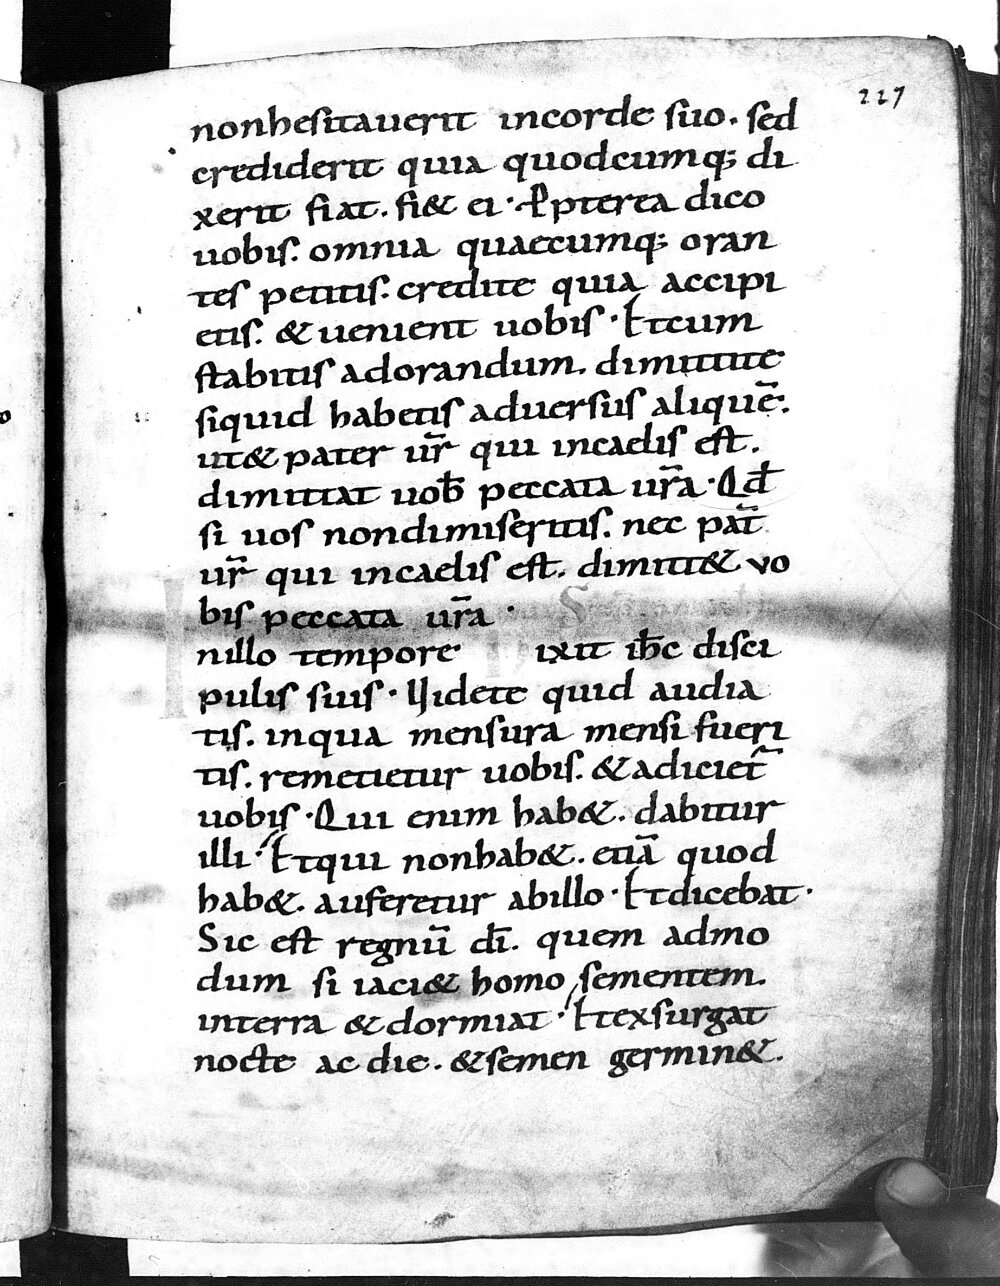 227
nonhesitauerit incorde suo. sed
crediderit quia quodcumq; di
xerit fiat. fi& ei · Ppterea dico
uobis. omnia quaecumq; oran
tes petitis. credite quia accipi
etis. & uenient uobis · Etcum
stabitis adorandum. dimittite
siquid habetis aduersus aliquē.
ut& pater ur̄ qui incaelis est.
dimittat uob̄ peccata ur̄a · Qd̄
si uos nondimiseritis. nec pat̄
ur̄ qui incaelis est. dimitt& vo
bis peccata ur̄a ·
Inillo tempore Dixit ih̄c disci
pulis suis · Uidete quid audia
tis. inqua mensura mensi fueri
tis. remetietur uobis. & adiciet̄
uobis · Qui enim hab&. dabitur
illi · Etqui nonhab&. etiā quod
hab&. auferetur abillo · Etdicebat ·
Sic est regnū dī. quem admo
dum si iaci& homo sementem.
interra & dormiat · Etexsurgat
nocte ac die. & semen germin&.